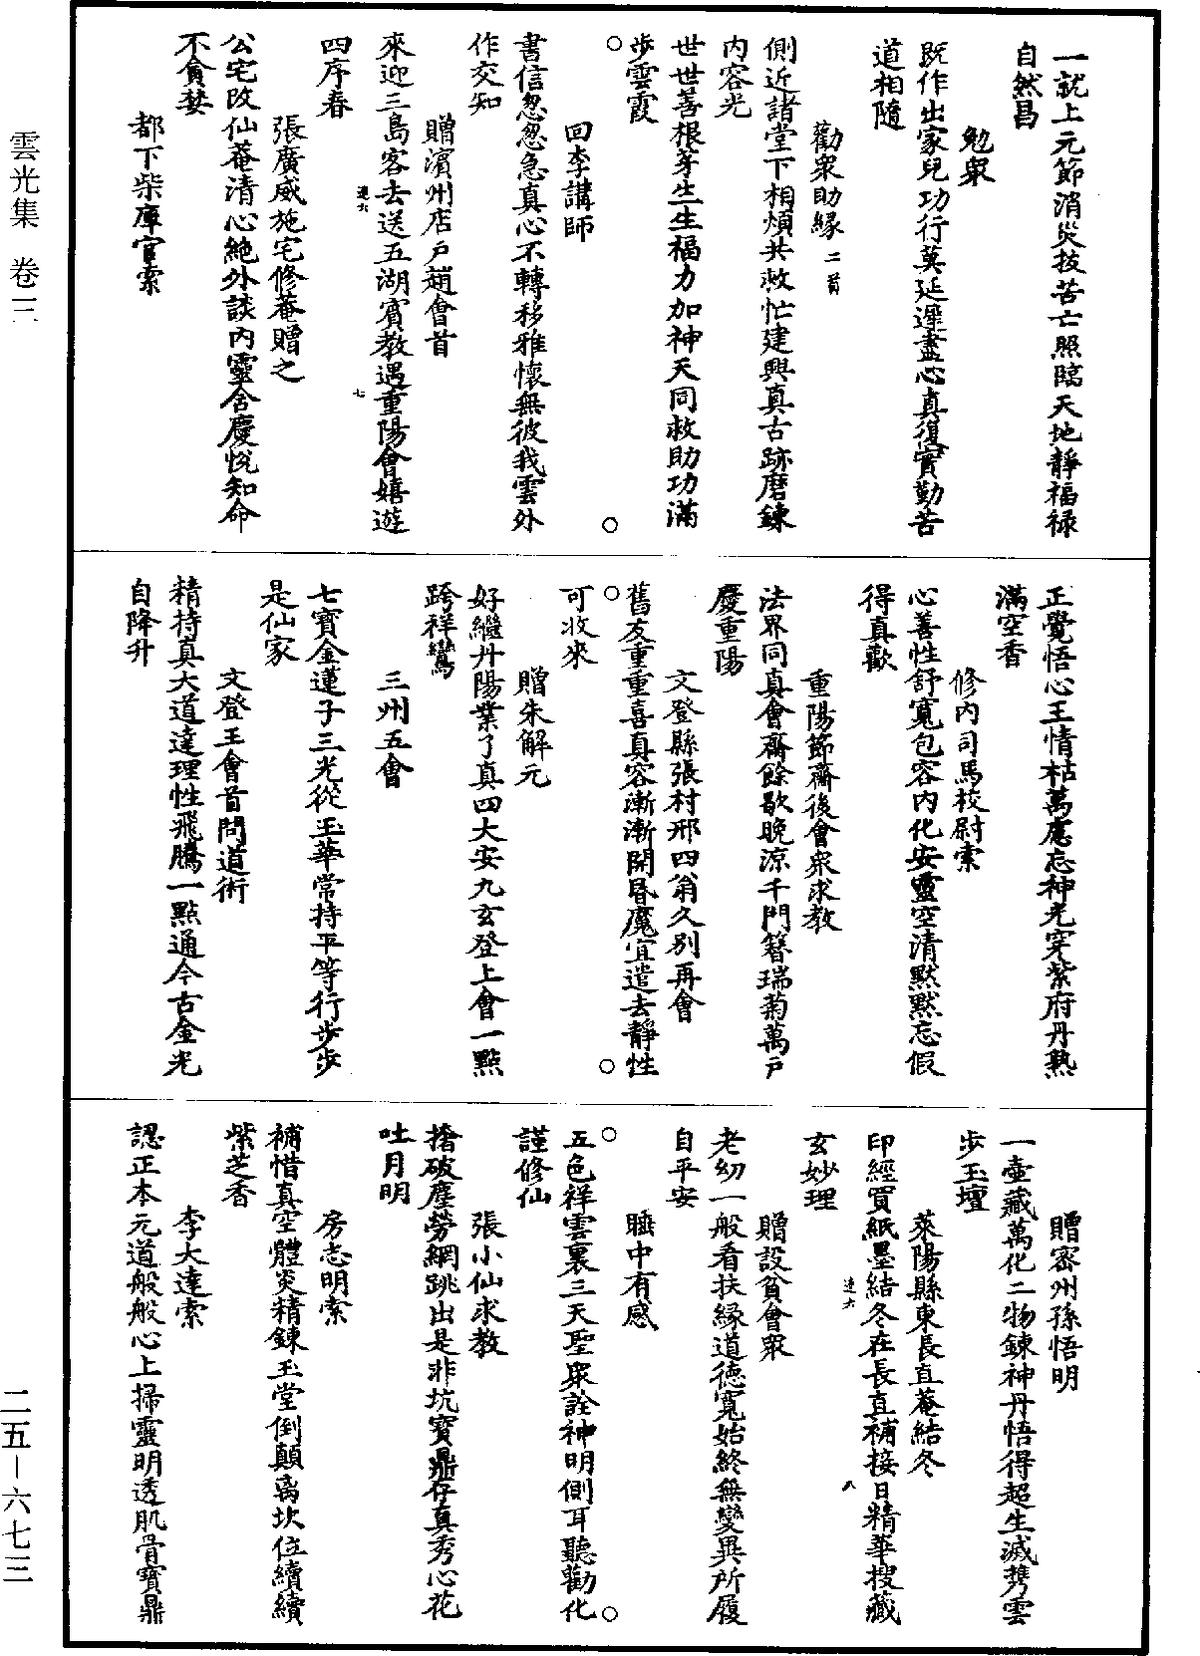 一就上元節消災拔苦亡照臨天地靜福祿
自然昌
勉衆
既作出家兒功行莫延遲盡心真復實勤苦
道相隨
勸衆助緣二首
側近諸堂下相煩共救忙建興真古跡磨鍊
内容光
世世善根芽生生福力加神天同救助功滿
步雲霞
回李講師
書信怱怱急真心不轉移雅懷無彼我雲外
作交知
贈濱州店戶趙會首
來迎三島客去送五湖賓教遇重陽會嬉遊
四序春
張廣威施宅修菴贈之
公宅改仙菴清心絶外談内靈舍慶悅知命
不貪婪
都下柴庫官索
正覺悟心王情枯萬慮忘神光穿紫府丹熟
滿空香
修内司馬校尉索
心善性舒寬包容内化安靈空清默默忘假
得真歡
重陽節齋後會衆求教
法界同真會齋餘歇晚涼千門簪瑞菊萬戶
慶重陽
文登縣張村邢四翁久别再會
舊友重重喜真容漸漸開昏魔宜遣去靜性
可收來
贈朱解元
好繼丹陽業了真四大安九玄登上會一點
跨祥鸞
三州五會
七寶金蓮子三光從玉華常持平等行步步
是仙家
文登王會首問道術
精持真大道達理性飛騰一點通今古金光
自降升
贈密州孫悟明
一壺藏萬化二物鍊神丹悟得超生滅携雲
步玉壇
萊陽縣東長直菴結冬
印經買紙墨結冬在長直補接日精華搜藏
玄妙理
贈設貧會衆
老幼一般看扶緣道德寬始終無變異所履
自平安
睡中有感
五色祥雲裏三天聖衆詮神明側耳聽勸化
謹修仙
張小仙求教
搶破塵勞網跳出是非坑寶鼎存真秀心花
吐月明
房志明索
補惜真空體炎精鍊玉堂倒顛离坎位續續
紫芝香
李大達索
認正本元道般般心上掃靈明透肌骨寶鼎
雲光集　卷三
二五－六七三